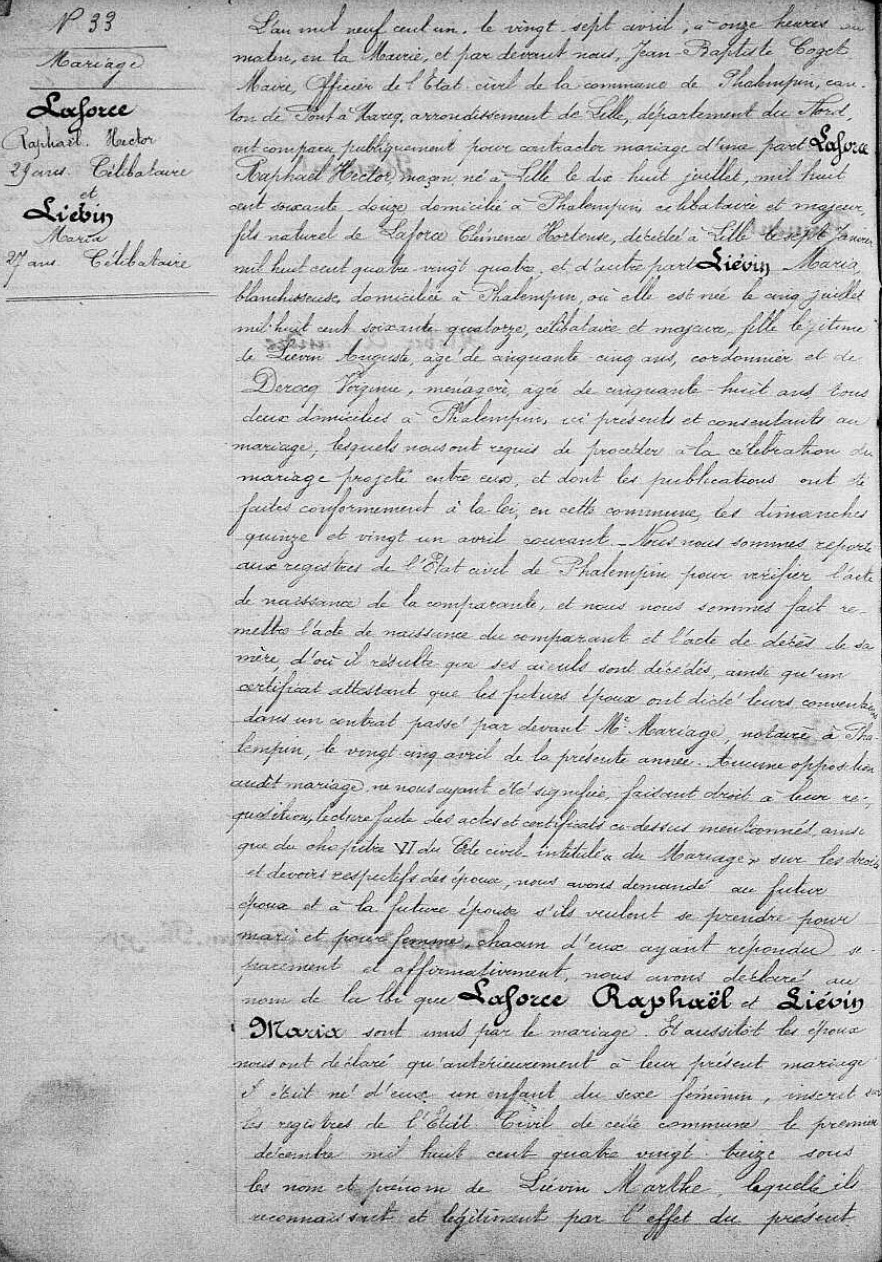 N° 33
Mariage
Laforce
Raphaël. Hector
29 ans. Célibataire
et
Liévin
Maria
27 ans Célibataire
L'an mil neuf cent un, le vingt sept avril, à onze heures du
matin, en la Mairie, et par devant nous, Jean-Baptiste Coget
Maire, Officier de l'Etat civil de la commune de Phalempin, can-
ton de Pont à Marcq, arrondissement de Lille, département du Nord,
ont comparu publiquement pour contracter mariage d'une part Laforce
Raphaël Hector, maçon, né à Lille le dix huit juillet, mil huit
cent soixante douze domicilié à Phalempin, célibataire et majeur,
fils naturel de Laforce Clémence Hortense, décédée à Lille le sept Janvier
mil huit cent quatre-vingt quatre, et d'autre part Liévin Maria,
blanchisseuse, domiciliée à Phalempin, où elle est née le cinq juillet
mil huit cent soixante-quatorze, célibataire et majeure, fille légitime
de Liévin Auguste, âgé de cinquante-cinq ans, cordonnier et de
Dercq Virginie, ménagère, âgée de cinquante-huit ans, tous
deux domiciliés à Phalempin, ici présents et consentants au
mariage, lesquels nous ont requis de procéder à la célébration du
mariage projeté entre eux, et dont les publications ont été
faites conformément à la loi, en cette commune, les dimanches
quinze et vingt un avril courant. - Nous nous sommes reporté
aux registres de l'Etat civil de Phalempin pour vérifier l'acte
de naissance de la comparante, et nous nous sommes fait re-
mettre l'acte de naissance du comparant et l'acte de décès de sa
mère, d'où il résulte que ses aïeuls sont décédés, ainsi qu'un
certificat attestant que les futurs époux ont dicté leurs conventions
dans un contrat passé par devant Me Mariage, notaire à Pha-
lempin, le vingt cinq avril de la présente année. Aucune opposition
audit mariage, ne nous ayant été signifiée, faisant droit à leur re-
quisition, lecture faite des actes et certificats ci-dessus mentionnés, ainsi
que du chapitre VI du Code civil intitulé « du Mariage » sur les droits
et devoirs respectifs des époux, nous avons demandé au futur
époux et à la future épouse s'ils veulent se prendre pour
mari et pour femme, chacun d'eux ayant répondu sé-
parément et affirmativement, nous avons déclaré au
nom de la loi que Laforce Raphaël et Liévin
Maria sont unis par le mariage. Et aussitôt les époux
nous ont déclaré qu'antérieurement à leur présent mariage
il était né d'eux un enfant du sexe féminin, inscrit sur
les registres de l'Etat Civil de cette commune le premier
décembre mil huit cent quatre vingt treize sous
les nom et prénom de Liévin Marthe, laquelle ils
reconnaissent et légitiment par l'effet du présent